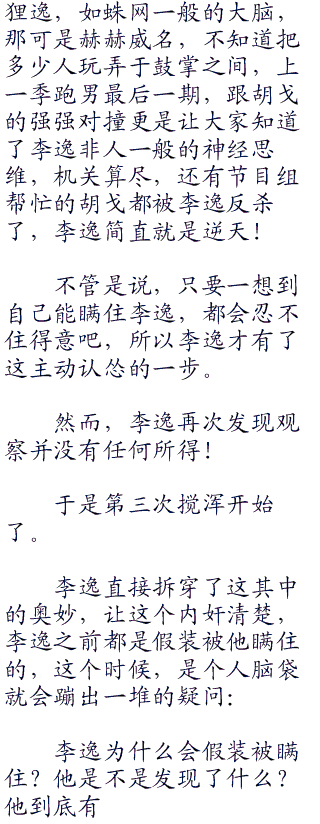 狸逸，如蛛网一般的大脑，
那可是赫赫威名，不知道把
多少人玩弄于鼓掌之间，上
一季跑男最后一期，跟胡戈
的强强对撞更是让大家知道
了李逸非人一般的神经思
维，机关算尽，还有节目组
帮忙的胡戈都被李逸反杀
了，李逸简直就是逆天！
不管是说，只要一想到
自己能瞒住李逸，都会忍不
住得意吧，所以李逸才有了
这主动认怂的一步。
然而，李逸再次发现观
察并没有任何所得！
于是第三次搅浑开始
了。
李逸直接拆穿了这其中
的奥妙，让这个内奸清楚，
李逸之前都是假装被他瞒住
的，这个时候，是个人脑袋
就会蹦出一堆的疑问：
李逸为什么会假装被瞒
住？他是不是发现了什么？
他到底有